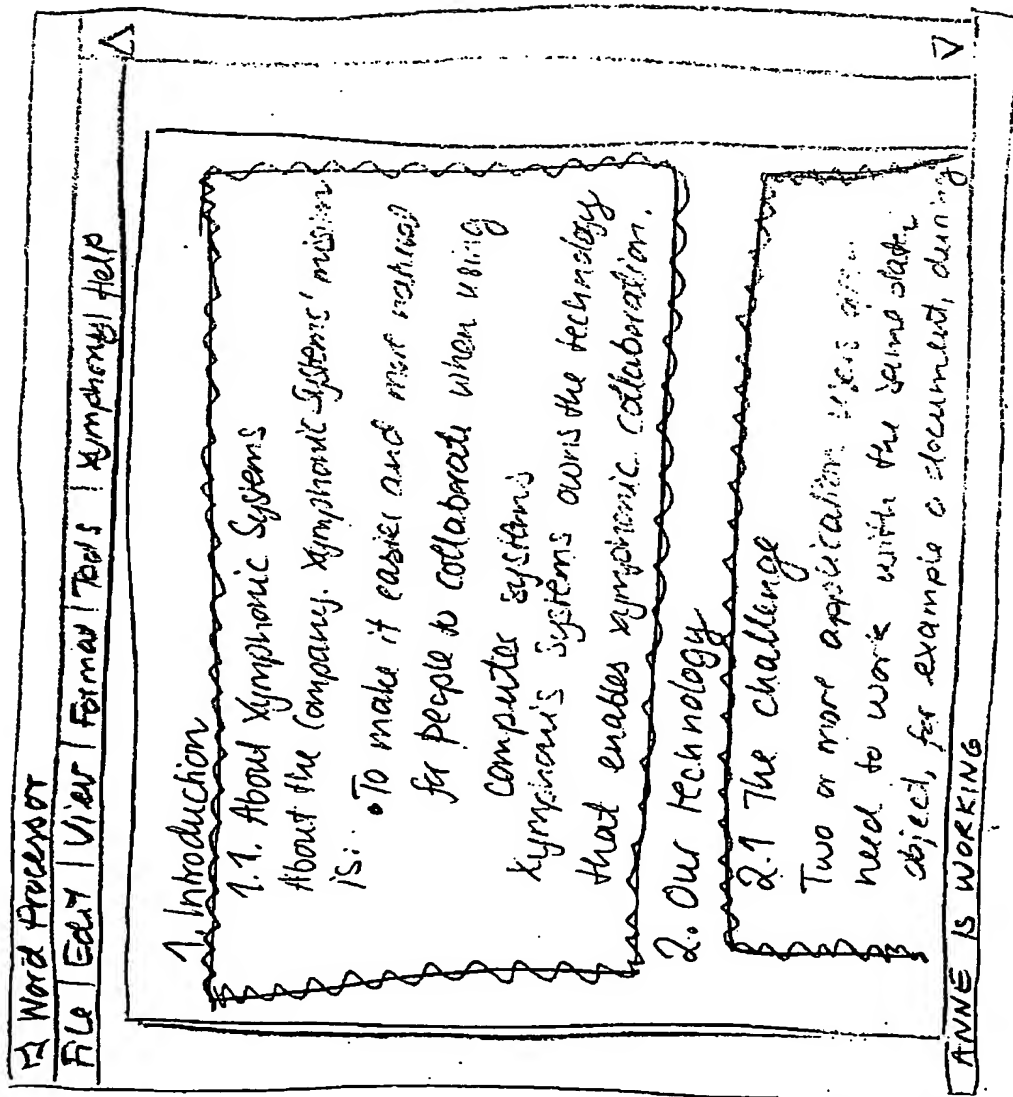 Word Processor
File | Edit | View | Format | Tools | Xymphony | Help
1. Introduction
1.1. About Xymphonic Systems
About the Company. Xymphonic Systems' mission
is:
• To make it easier and more natural
for people to collaborate when using
computer systems
Xymphonic Systems owns the technology
that enables xymphonic collaboration.
2. Our technology
2.1 The challenge
Two or more application users
need to work with the same data
object, for example a document, during
ANNE IS WORKING